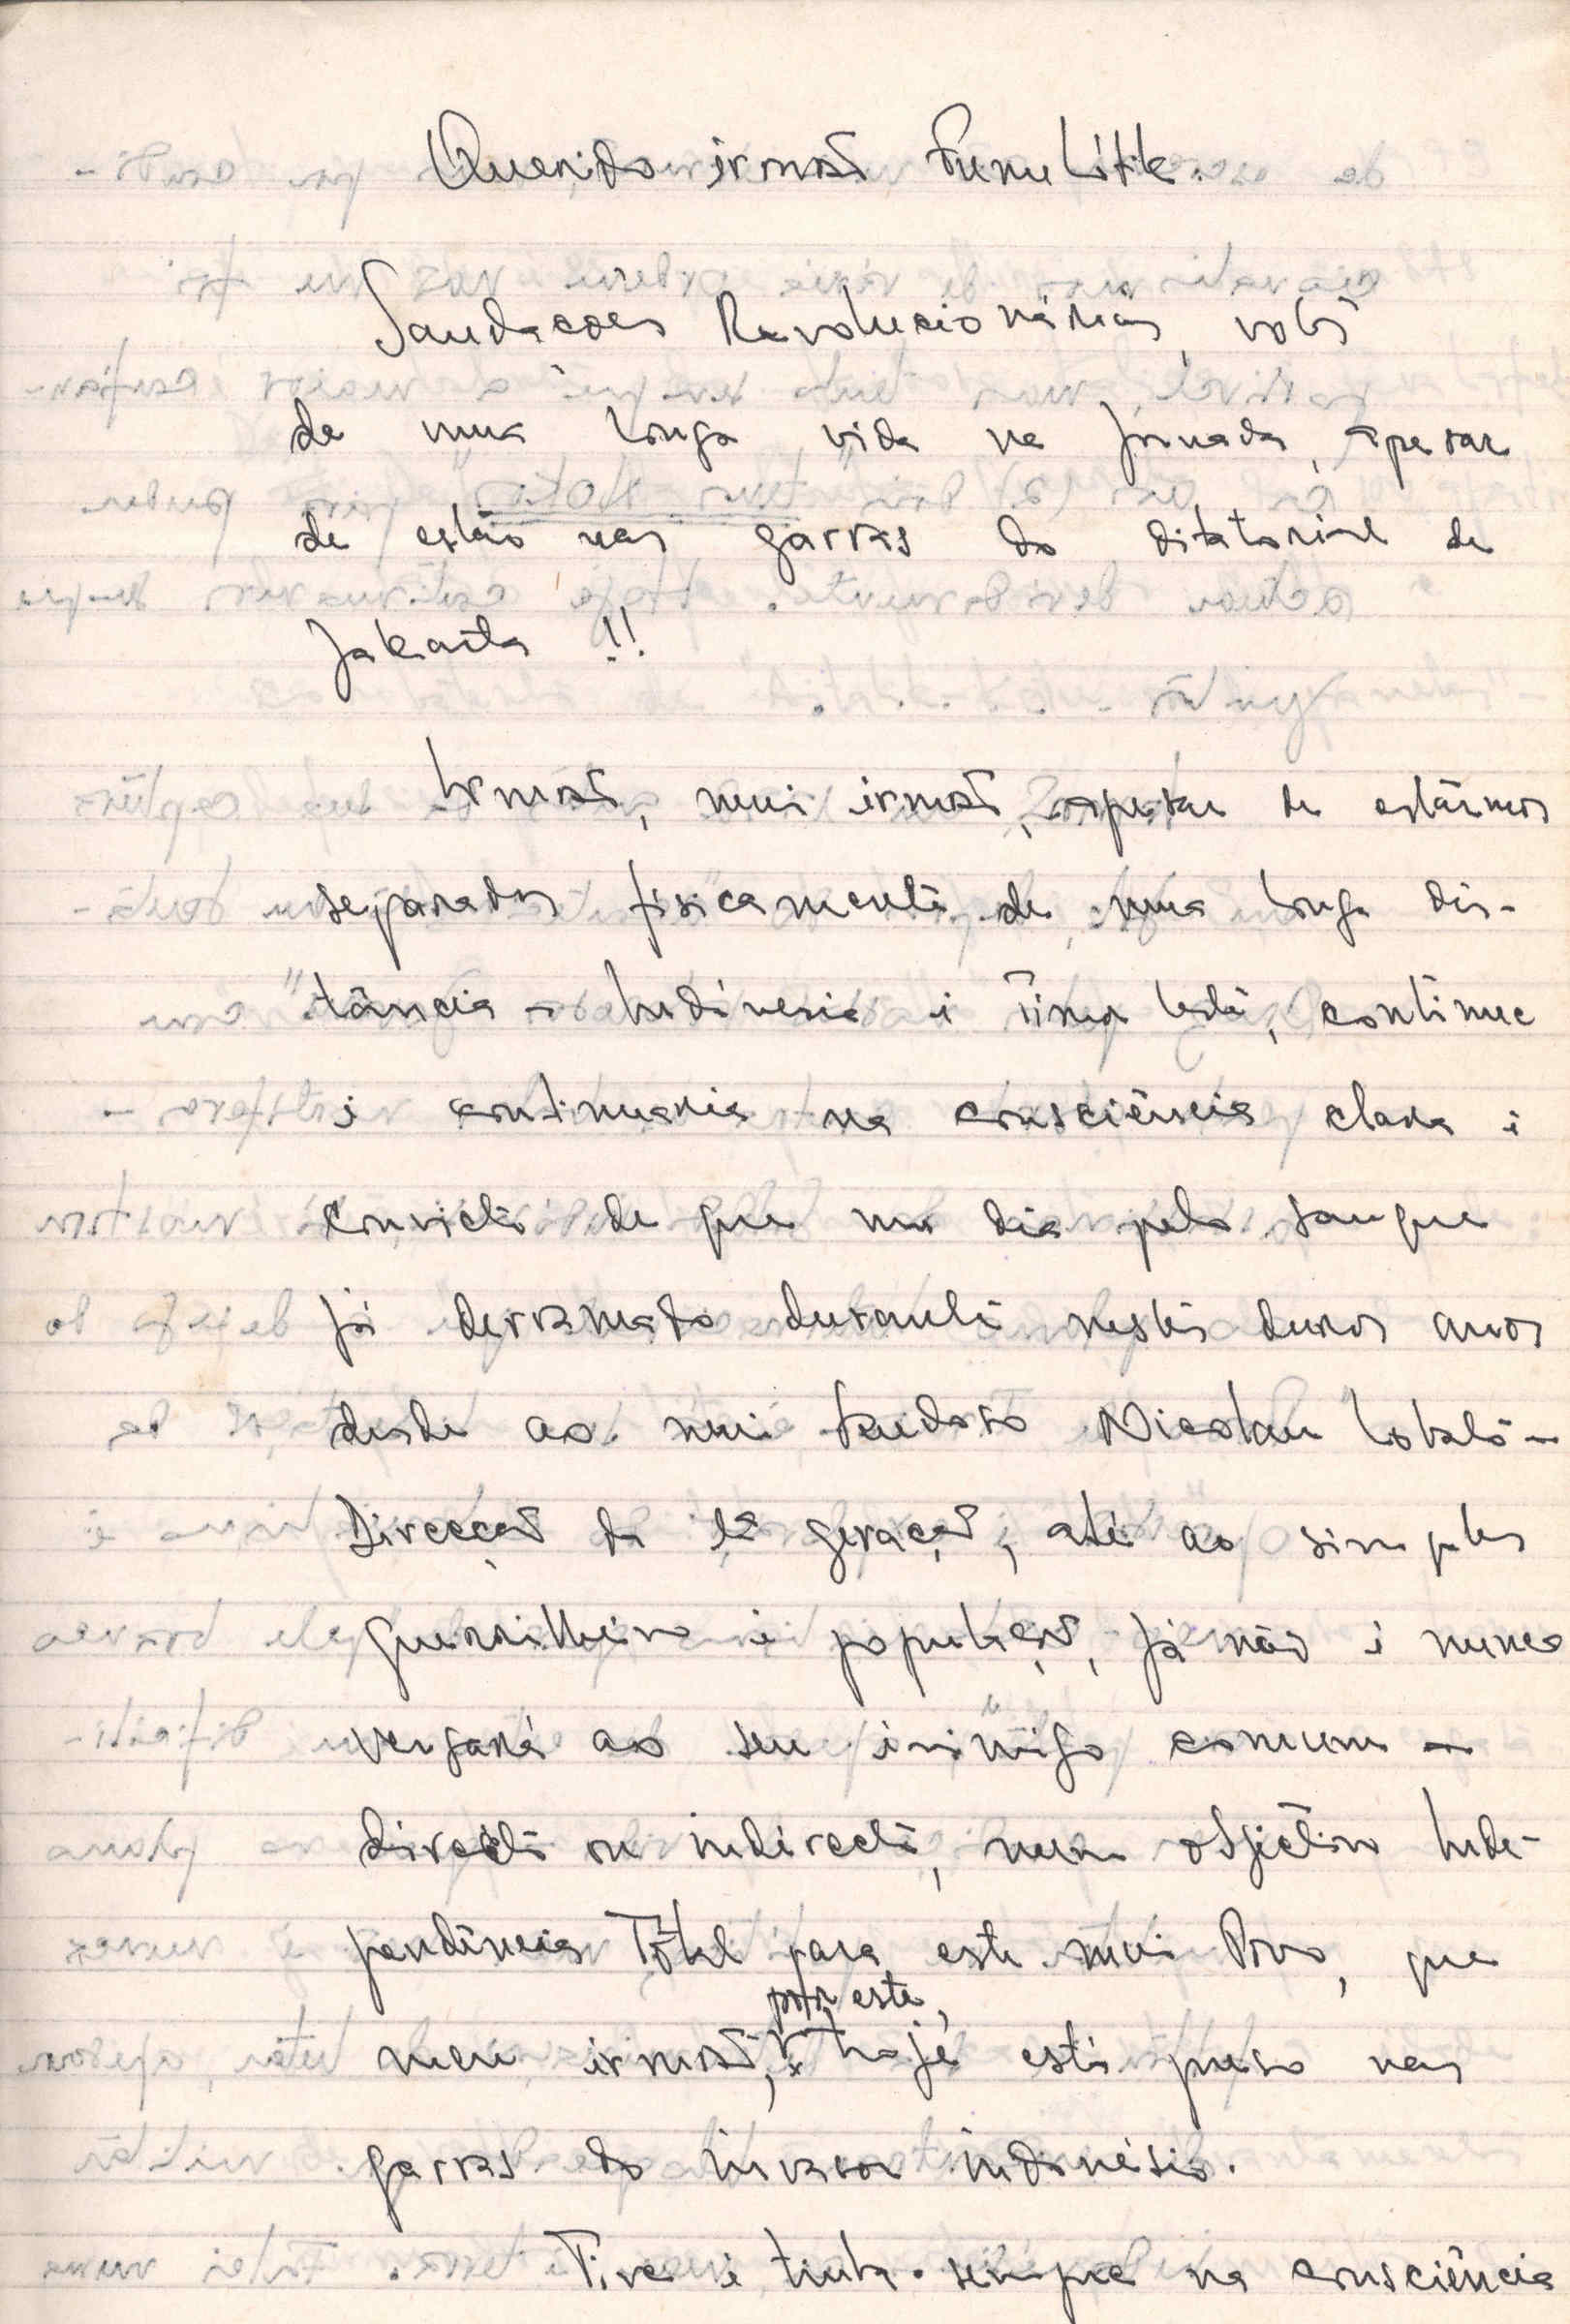 Querido irmão
Saudações Revolucionárias, votos
de uma longa vida na Jornada, apesar
de estão nas garras do ditatorial de
Jakarta !!
Irmão, meu irmão, apesar de estarmos
separados fisicamente de uma longa dis-
tância - Indonesia e Timor Leste, continue
e continuaria na consciência clara e
convicto de que um dia pelo sangue
já derramado durante nestes duros anos
desde ao mui saudoso Nicolau Lobato -
Direcção da 1ª geração, até ao simples
guerrilheiro e população, já não e nunca
vergará ao seu inimigo comum -
directo ou indirecto, num objectivo Inde-
pendência Total para este mui Povo, que
por este,
meu irmão, hoje está preso nas
garras do invasor indonésio.
Tive e tenho sempre na consciência